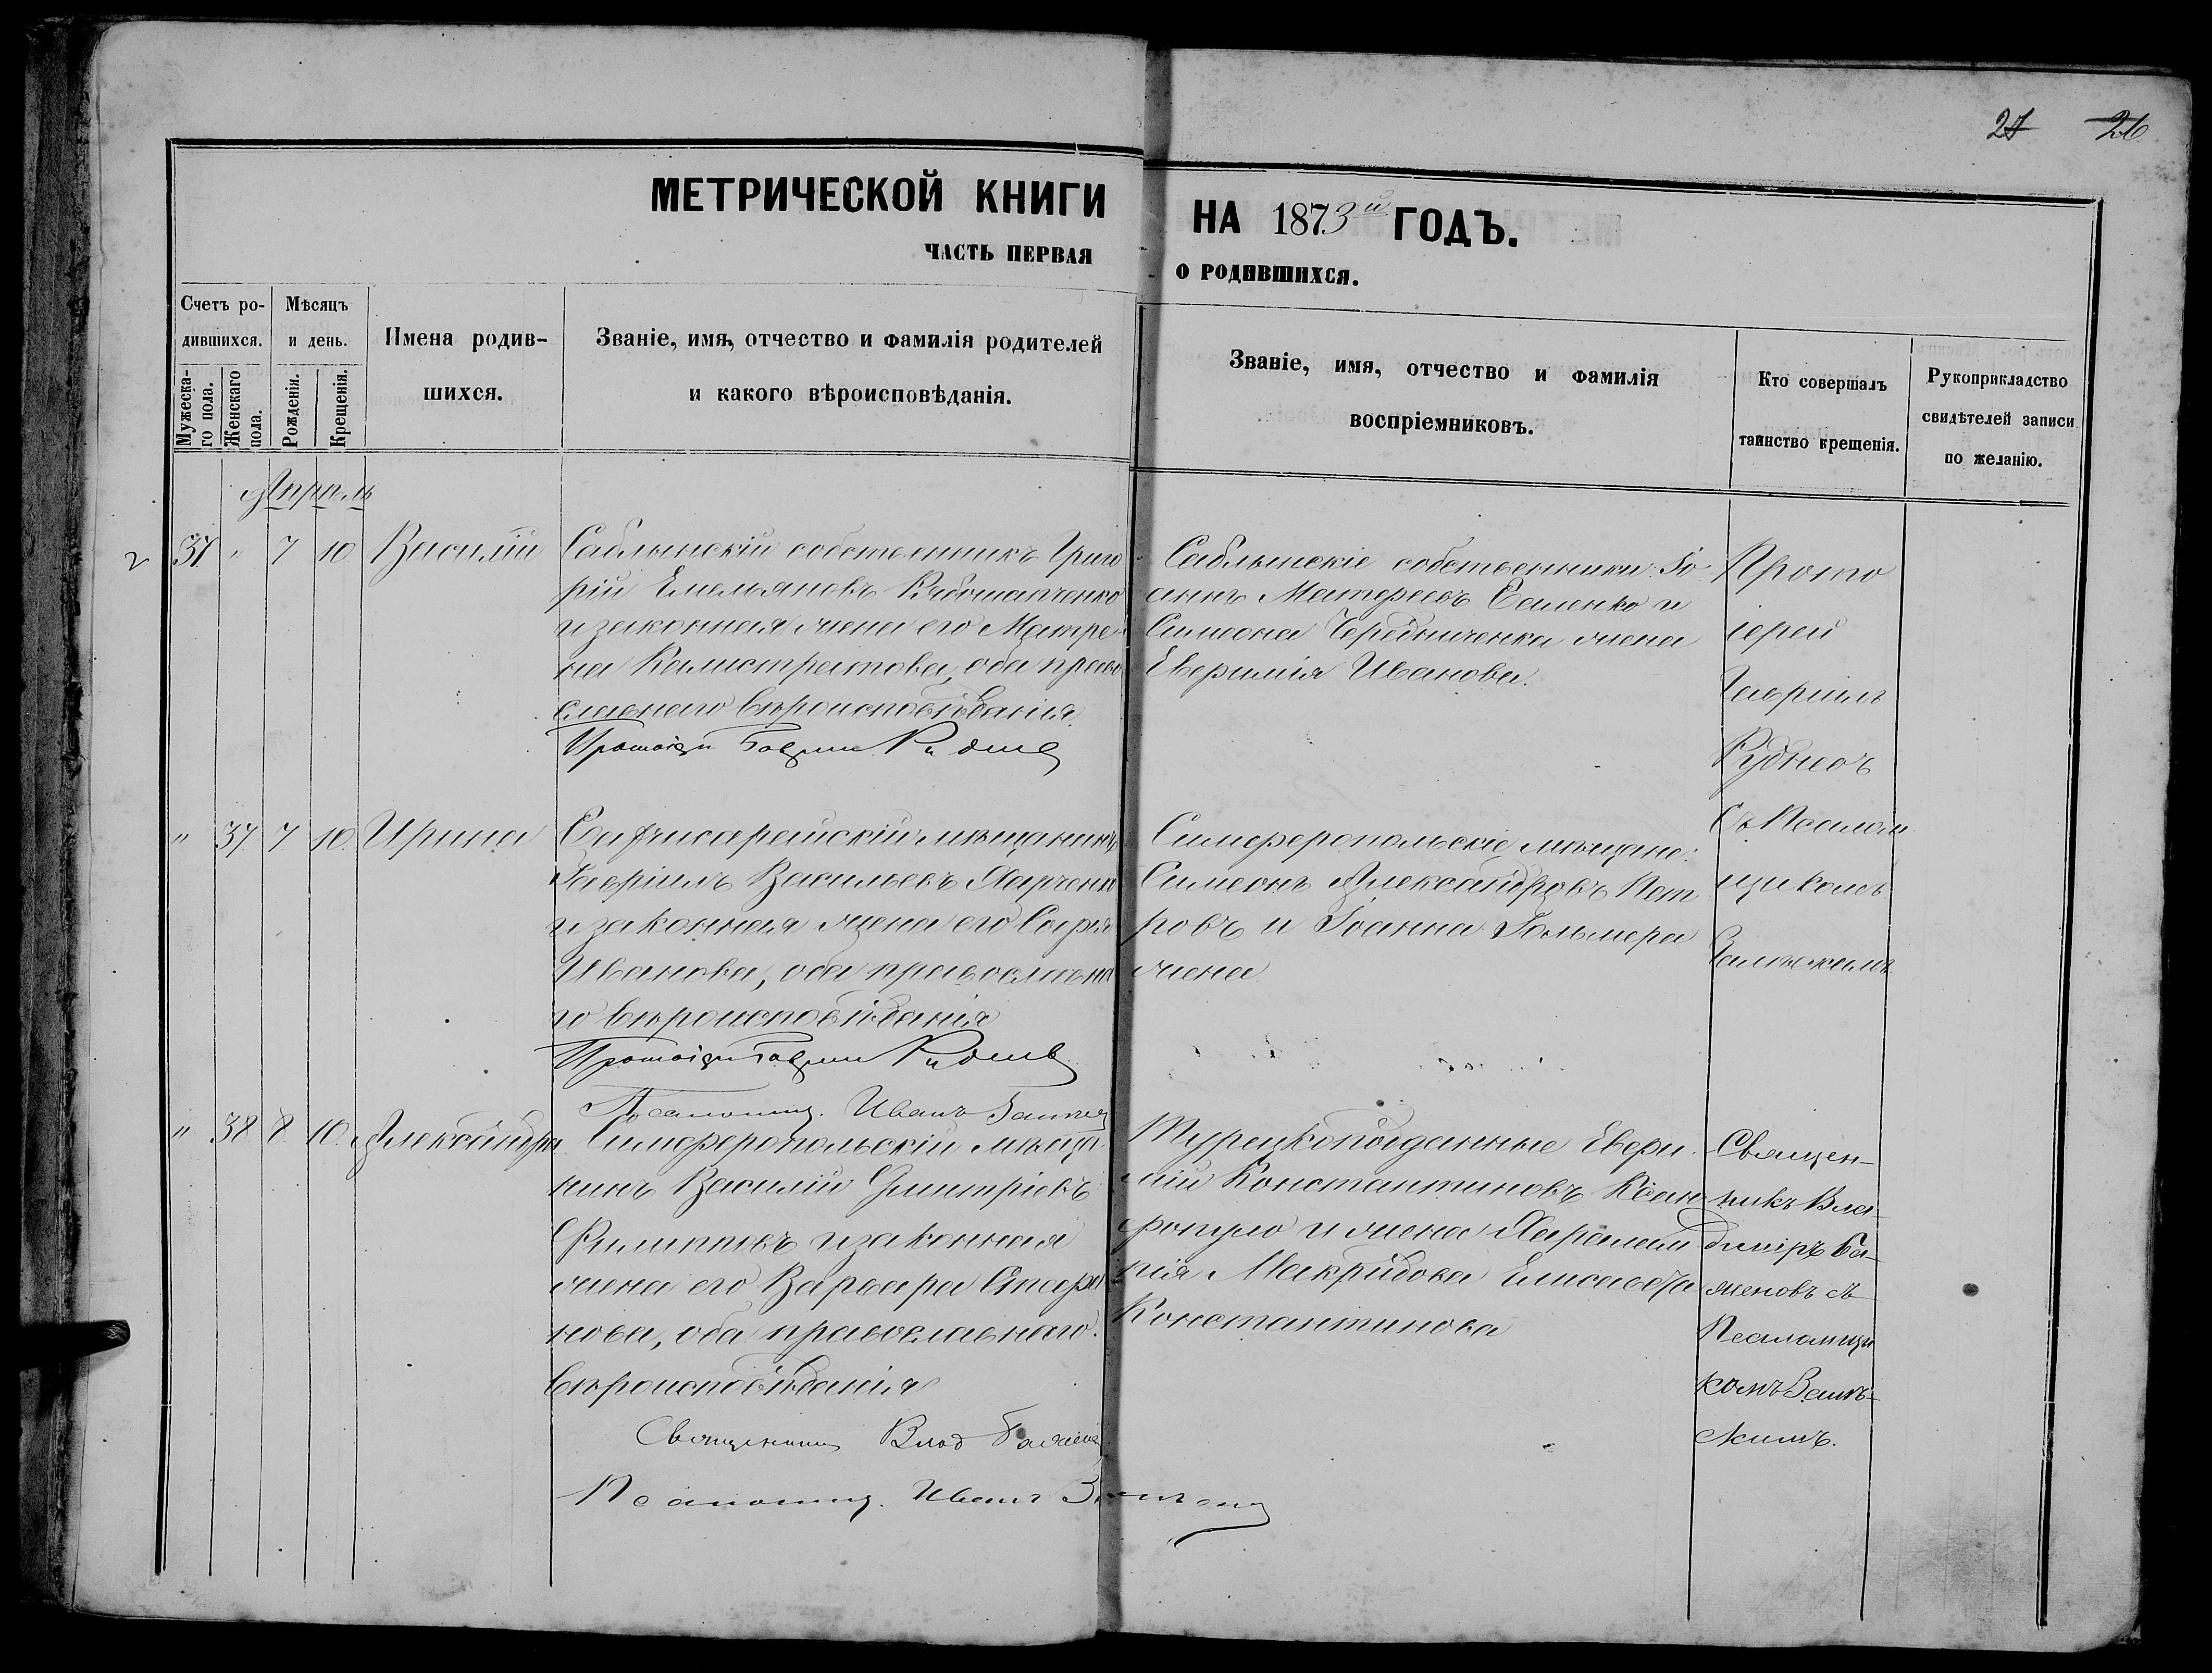 27 26
МЕТРИЧЕСКОЙ КНИГИ НА 1873й ГОДЪ.
ЧАСТЬ ПЕРВАЯ О РОДИВШИХСЯ.
Счетъ ро-
дившихся.
Мужеска-
го пола.
Женскаго
пола.
Мѣсяцъ
и день.
Рожденія.
Крещенія.
Имена родив-
шихся.
Званіе, имя, отчество и фамилія родителей
и какого вѣроисповѣданія.
Званіе, имя, отчество и фамилія
воспріемниковъ.
Кто совершалъ
таинство крещенія.
Рукоприкладство
свидѣтелей записи
по желанію.
Апрѣль
2 37 " 7 10 Василій
Саблынскій собственникъ Григо
рій Емельяновъ
и законная жена его Матре-
на Калистратова, оба право
славнаго вѣроисповѣданія.
Протоіерей Гавріилъ Рудневъ
Саблынскіе собственники: Іо
аннъ Матфеевъ Есаенко и
Симеона Чередниченка жена
Евфимія Иванова.
Прото
іерей
Гавріилъ
Рудневъ
Съ Псалом
щикомъ
" 37 7 10. Ирина
Бахчисарайскій мѣщанинъ
Гавріилъ Васильевъ Харченко
и законная жена его Софія
Иванова, оба православна
го вѣроисповѣданія
Протоіерей Гавріилъ Рудневъ
Псаломщ. Иванъ
Симферопольскіе мѣщане:
Симеонъ Александровъ Пет
ровъ и Іоанна Гольмера
жена
" 38 8 10. Александра
Симферопольскій мѣща
нинъ Василій Димитріевъ
Филипповъ и законная
жена его Варвара Стефа
нова, оба православнаго
вѣроисповѣданія
Священникъ Влад
Псаломщ. Иванъ
Турецкоподданные Евфи
мій Константиновъ Ксан
фопуло и жена Харалам
пія Макридова Елисавета
Константинова
Священ-
никъ Вла-
диміръ Ба-
женовъ съ
Псаломщи
комъ